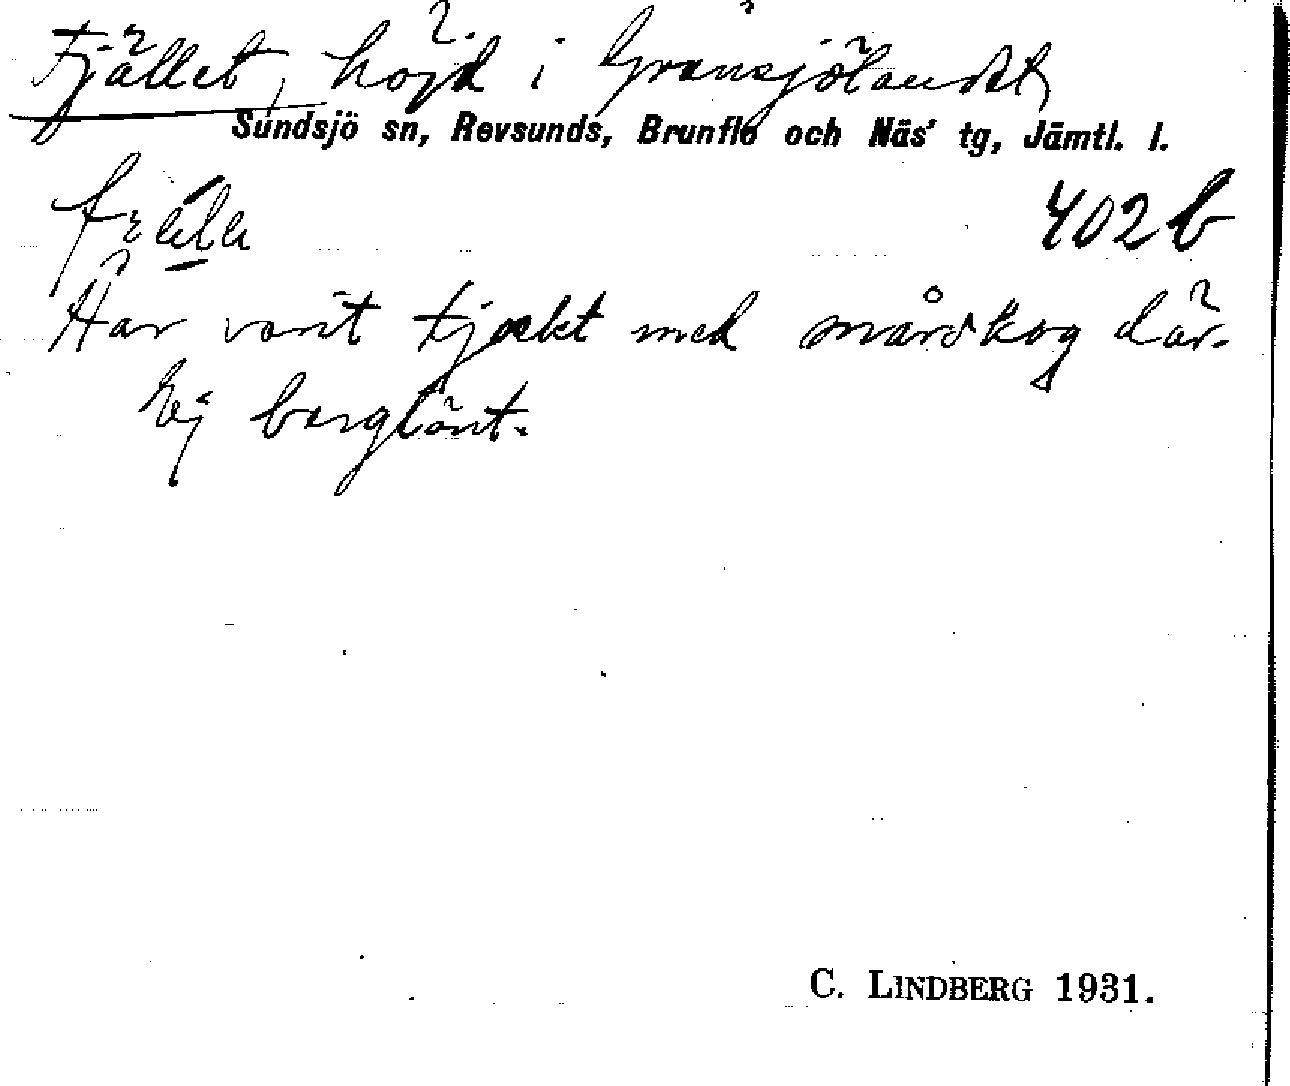 Fjället, höjd i Gransjölandet
Sundsjö sn, Revsunds, Brunflo och Näs' tg, Jämtl. l.
402b
Här varit tjockt med mårskog där.
Ej berglänt.
C. LINDBERG 1931.